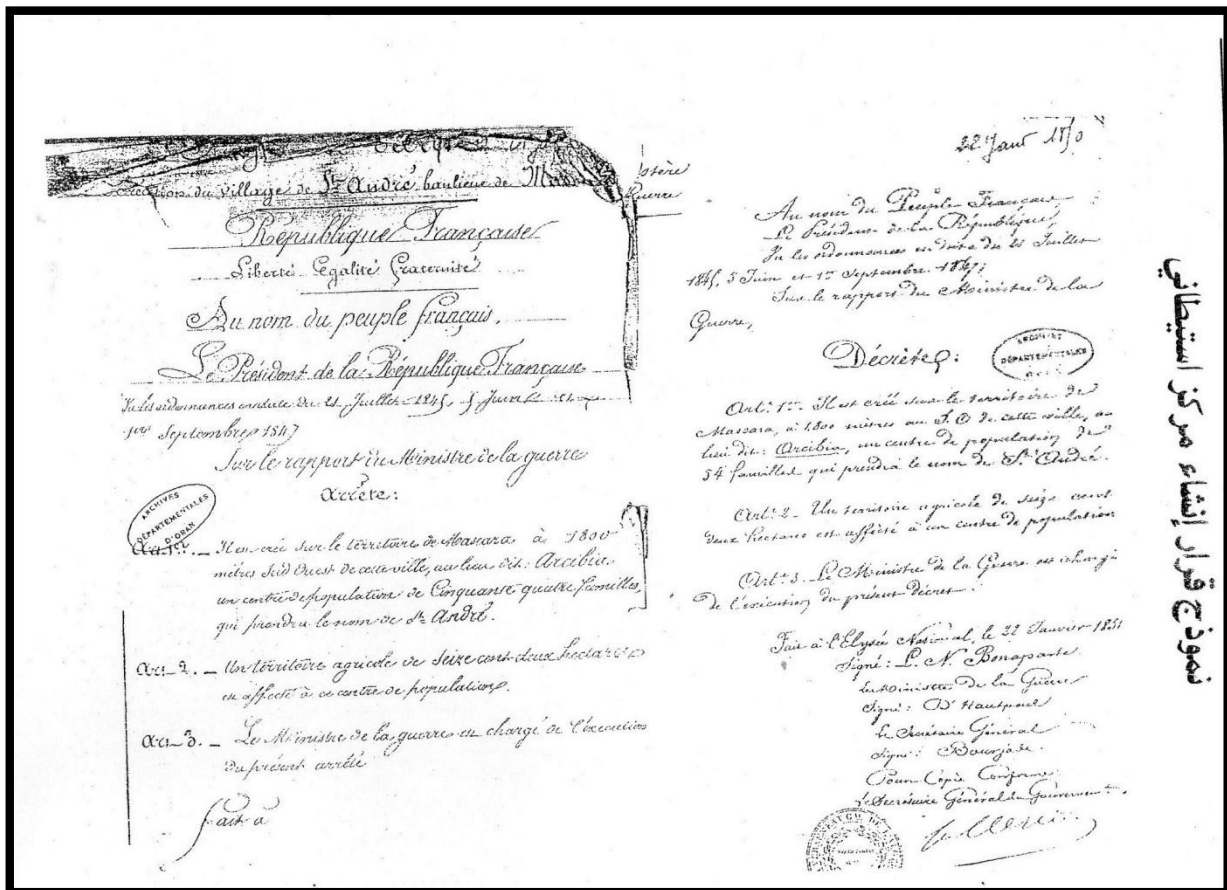 Création du village de St. André banlieue de
République Française
Liberté Egalité fraternité
Au nom du peuple français.
Le Président de la République Française
Vu les ordonnances en date du 21 Juillet 1845, 5 Juin et
1er Septembre 1847
Sur le rapport du Ministre de la guerre
Arrête:
ARCHIVES
DÉPARTEMENTALES
D'ORAN
Art. 1er. _ Il est créé sur le térritoire de Mascara à 1800
mètres Sud Ouest de cette ville, au lieu dit: Arcibia.
un centre de population de Cinquante quatre familles,
qui prendra le nom de St. André.
Art. 2. _ Un térritoire agricole de Seize cent deux hectares
est affecté à ce centre de population.
Art. 3. _ Le Ministre de la guerre est chargé de l'éxécution
du présent arrêté
fait à
22 Janv 1850
Au nom du Peuple Français
Le Président de la République,
Vu les ordonnances en date du 21 Juillet
1845, 5 Juin et 1er Septembre 1847;
Sur le rapport du Ministre de la
Guerre,
Décrète:
ARCHIVES
DÉPARTEMENTALES
Art. 1er Il est créé sur le territoire de
Mascara, à 1.800 mètres au S.O de cette ville, au
lieu dit: Arcibia, un centre de population de
54 familles qui prendra le nom de St. André.
Art. 2 _ Un territoire agricole de seize cent
deux hectares est affecté à un centre de population
Art. 3 _ Le Ministre de la Guerre est chargé
de l'exécution du présent décret.
Fait à l'Elysée National, le 22 Janvier 1851
Signé: L. N. Bonaparte
Le Ministre de la Guerre
Signé: D'Hautpoul
Le Secrétaire Général
Signé: Bourjade.
Pour Copie Conforme
Le Secrétaire Général du Gouvernement.
نموذج قرار إنشاء مركز استيطاني